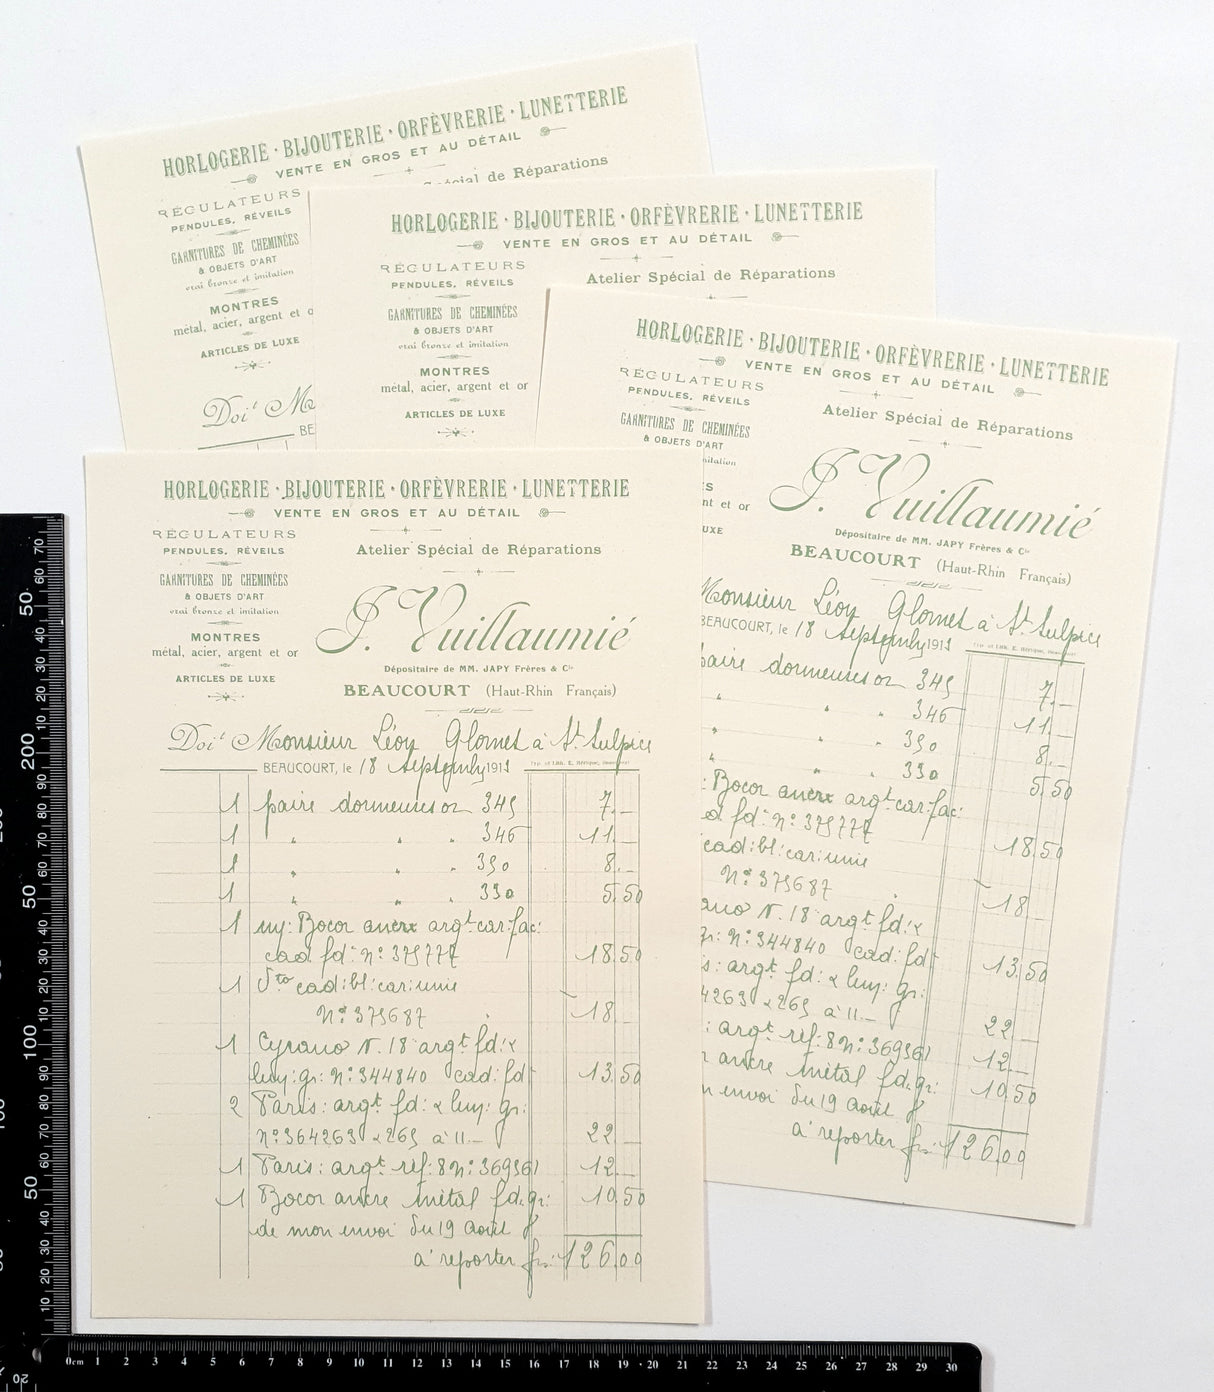 HORLOGERIE · BIJOUTERIE · ORFÈVRERIE · LUNETTERIE
VENTE EN GROS ET AU DÉTAIL
Spécial de Réparations
RÉGULATEURS
PENDULES, RÉVEILS
GARNITURES DE CHEMINÉES
& OBJETS D'ART
vrai bronze et imitation
MONTRES
métal, acier, argent et o
ARTICLES DE LUXE
Doit M
BE
HORLOGERIE · BIJOUTERIE · ORFÈVRERIE · LUNETTERIE
VENTE EN GROS ET AU DÉTAIL
RÉGULATEURS
PENDULES, RÉVEILS
Atelier Spécial de Réparations
GARNITURES DE CHEMINÉES
& OBJETS D'ART
vrai bronze et imitation
MONTRES
métal, acier, argent et or
ARTICLES DE LUXE
HORLOGERIE · BIJOUTERIE · ORFÈVRERIE · LUNETTERIE
VENTE EN GROS ET AU DÉTAIL
RÉGULATEURS
PENDULES, RÉVEILS
Atelier Spécial de Réparations
GARNITURES DE CHEMINÉES
& OBJETS D'ART
imitation
S
nt et or
UXE
J. Vuillaumié
Dépositaire de MM. JAPY Frères & Cie
BEAUCOURT (Haut-Rhin Français)
Monsieur Léon Glomet à St Sulpice
BEAUCOURT, le 18 Septembre 1911
paire dormeuses or 345 7.–
" " " 346 11.–
" " " 350 8.–
" " " 330 5.50
: Bocor ancre argt car: fac:
cad fd: No: 375777 18.50
cad: bl: car: unie
No: 375687 18.–
ano N. 18 argt fd:
gr: No: 344840 cad: fd 13.50
s: argt fd: & luy: gr:
4263 & 265 à 11.– 22.–
: argt réf: 8 No: 369361 12.–
r ancre métal fd. gr: 10.50
n envoi du 19 Août
à reporter frs: 126.00
HORLOGERIE · BIJOUTERIE · ORFÈVRERIE · LUNETTERIE
VENTE EN GROS ET AU DÉTAIL
RÉGULATEURS
PENDULES, RÉVEILS
Atelier Spécial de Réparations
GARNITURES DE CHEMINÉES
& OBJETS D'ART
vrai bronze et imitation
MONTRES
métal, acier, argent et or
ARTICLES DE LUXE
J. Vuillaumié
Dépositaire de MM. JAPY Frères & Cie
BEAUCOURT (Haut-Rhin Français)
Doit Monsieur Léon Glomet à St Sulpice
BEAUCOURT, le 18 Septembre 1911
1 paire dormeuses or 345 7.–
1 " " " 346 11.–
1 " " " 350 8.–
1 " " " 330 5.50
1 luy: Bocor ancre argt car: fac:
cad fd: No: 375777 18.50
1 Dto cad: bl: car: unie
No: 375687 18.–
1 Cyrano N. 18 argt fd: &
luy: gr: No: 344840 cad: fd 13.50
2 Paris: argt fd: & luy: gr:
No: 364263 & 265 à 11.– 22.–
1 Paris: argt réf: 8 No: 369361 12.–
1 Bocor ancre métal fd. gr: 10.50
de mon envoi du 19 Août
à reporter frs: 126.00
70
60
50
40
30
20
10
200
90
80
70
60
50
40
30
20
10
100
90
80
70
60
50
40
30
20
10
0cm 1 2 3 4 5 6 7 8 9 10 11 12 13 14 15 16 17 18 19 20 21 22 23 24 25 26 27 28 29 30